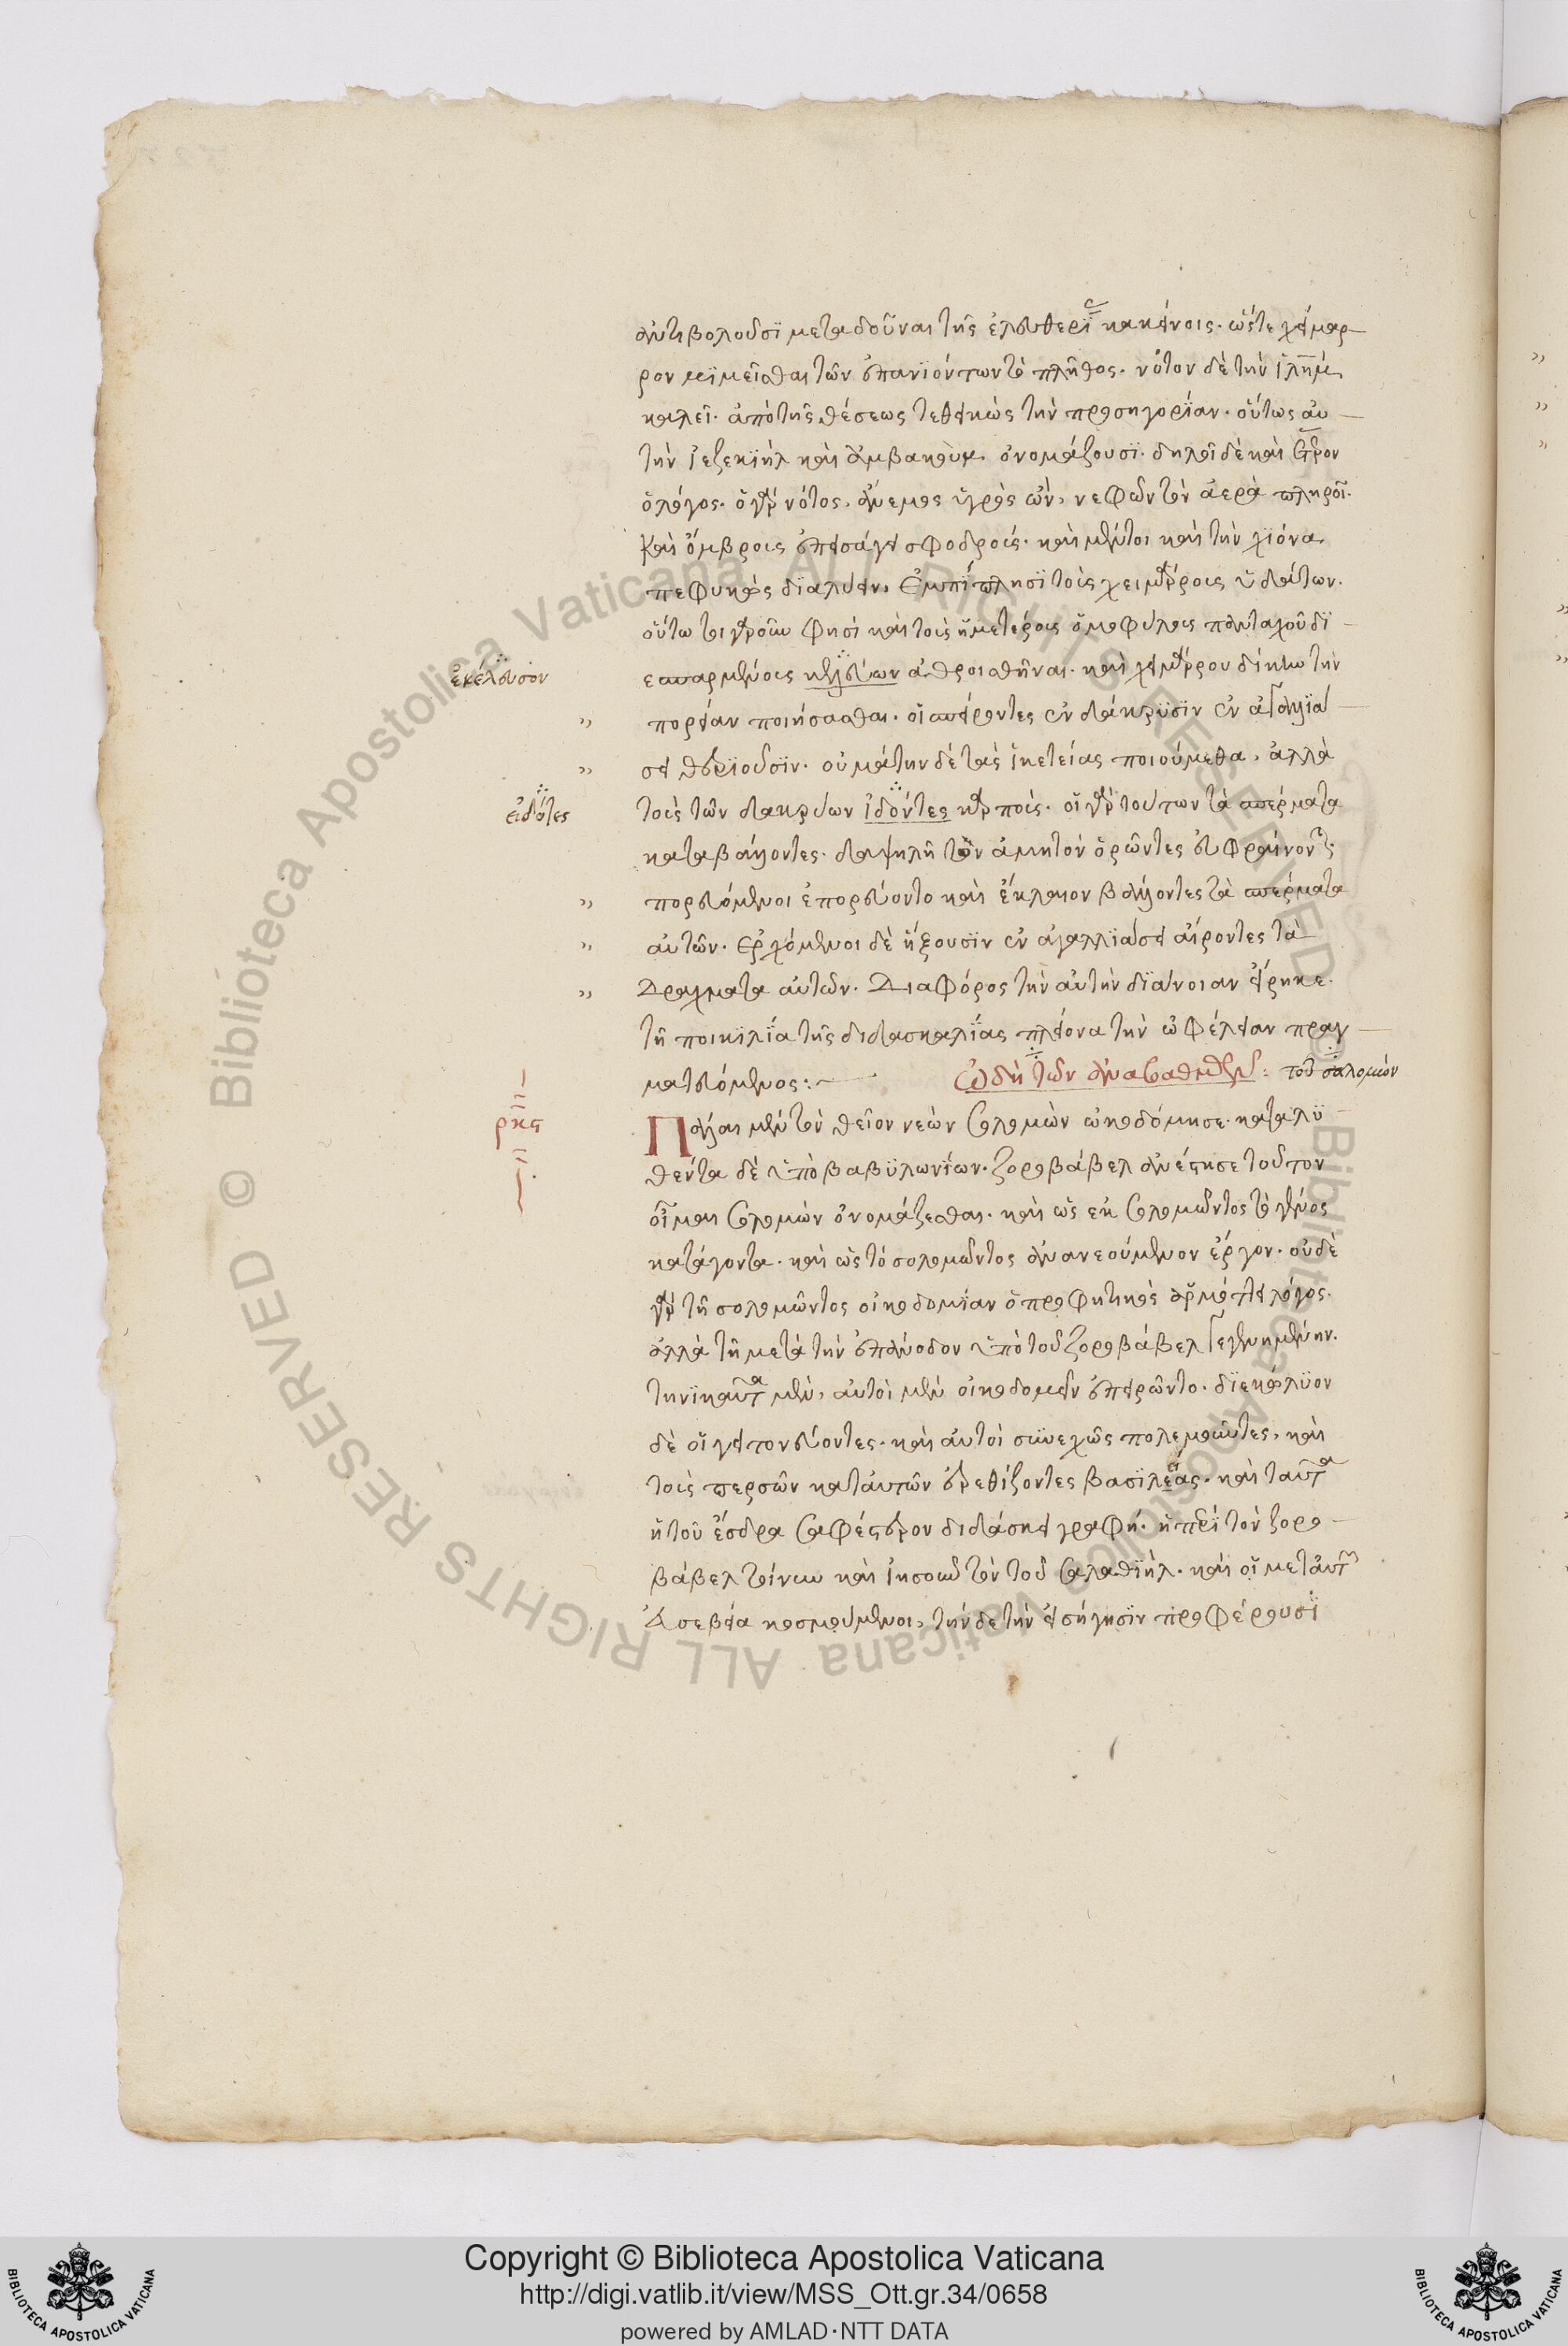 ἀντιβολοῦσϊ μεταδοῦναι τῆς ἐλευθερΐας κακείνοις. ὥστε χειμαρ
ρον μϊμεῖσθαι τῶν ἐπανϊόντων τὸ πλῆθος. νότον δὲ τὴν ἱλημ
καλεῖ. ἀπὸ τῆς θέσεως τεθεικὼς τὴν προσηγορΐαν. οὕτως αὐ
τὴν ἰεζεκιὴλ καὶ ἀμβακοὺμ ὀνομάζουσϊ. δηλοῖ δὲ καὶ ἕτερον
ὁ λόγος. ὁ γὰρ νότος, ἄνεμος ὑγρὸς ὢν, νεφῶν τὸν ἀερὰ πληροῖ.
καὶ ὄμβροις ἐπεισάγει σφοδροίς. καὶ μέντοι καὶ τὴν χϊόνα
πεφυκὸς δϊαλύειν, ἐμπίπλησϊ τοὶς χειμάρροις ὑδάτων.
οὕτω τοιγαροῦν φησὶ καὶ τοὶς ἡμετέροις ὁμοφύλοις πανταχοῦ δϊ
εσπαρμένοις κελεύων ἀθροισθῆναι. καὶ χειμάρρου δίκην τὴν
ἐκέλευσον
πορείαν ποιήσασθαι. οἱ σπείροντες ἐν δάκρϋσϊν ἐν ἀγαλλϊά
σει θερϊοῦσϊν. οὐ μάτην δὲ τὰς ἱκετείας ποιούμεθα, ἀλλὰ
τοὶς τῶν δακρύων ἰδόντες καρποὶς. οἱ γὰρ τούτων τὰ σπέρματα
εἰδότες
καταβάλλοντες. δαψιλῆ τὸν ἀμητὸν ὁρῶντες εὐφραίνοντ
πορευόμενοι ἐπορεύοντο καὶ ἔκλαιον βάλλοντες τὰ σπέρματα
αὐτῶν. ἐρχόμενοι δὲ ἥξουσϊν ἐν ἀγαλλϊάσει αἴροντες τὰ
δράγματα αὐτῶν. Διαφόρος τὴν αὐτὴν δϊάνοιαν εἴρηκε.
τῆ ποικϊλΐα τῆς διδασκαλΐας πλείονα τὴν ὠφέλειαν πραγ
ματευόμενος:
ὠδὴ τῶν ἀναβαθμῶν: τοῦ σαλομών
ρκς
Πάλαι μὲν τὸν θεῖον νεὼν σολομὼν ὠκοδόμησε. καταλϋ
θέντα δὲ ὑπὸ βαβϋλωνΐων. ζοροβάβελ ἀνέστησε τοῦτον
οἶμαι σολομὼν ὀνομάζεσθαι. καὶ ὡς ἐκ σολομῶντος τὸ γένος
κατάγοντα. καὶ ὡς τὸ σολομῶντος ἀνανεούμενον ἔργον. οὐδὲ
γὰρ τῆ σολομῶντος οἰκοδομΐαν ὁ προφητικὸς ἁρμόττει λόγος.
ἀλλὰ τῆ μετὰ τὴν ἐπάνοδον ὑπὸ τοῦ ζοροβάβελ γεγενημένην.
τηνϊκαῦτα μὲν, αὐτοὶ μὲν οἰκοδομεῖν ἐπειρῶντο. δϊεκώλϋον
δὲ οἱ γειτονεύοντες. καὶ αὐτοὶ σϋνεχῶς πολεμοῦντες, καὶ
τοὶς περσῶν κατ αὐτῶν ἐρεθίζοντες βασϊλεάς. καὶ ταῦτα
ἡ τοῦ ἔσδρα σαφέστερον διδάσκει γραφή. ἡ περὶ τὸν ζορο
βάβελ τοίνυν καὶ ἰησοῦν τὸν τοῦ σαλαθϊὴλ. καὶ οἱ μετ αὐτ
εὐσεβεία κοσμούμενοι, τήνδε τὴν εἰσήγησϊν προφέρουσϊ
Copyright © Biblioteca Apostolica Vaticana
http://digi.vatlib.it/view/MSS_Ott.gr.34/0658
powered by AMLAD·NTT DATA